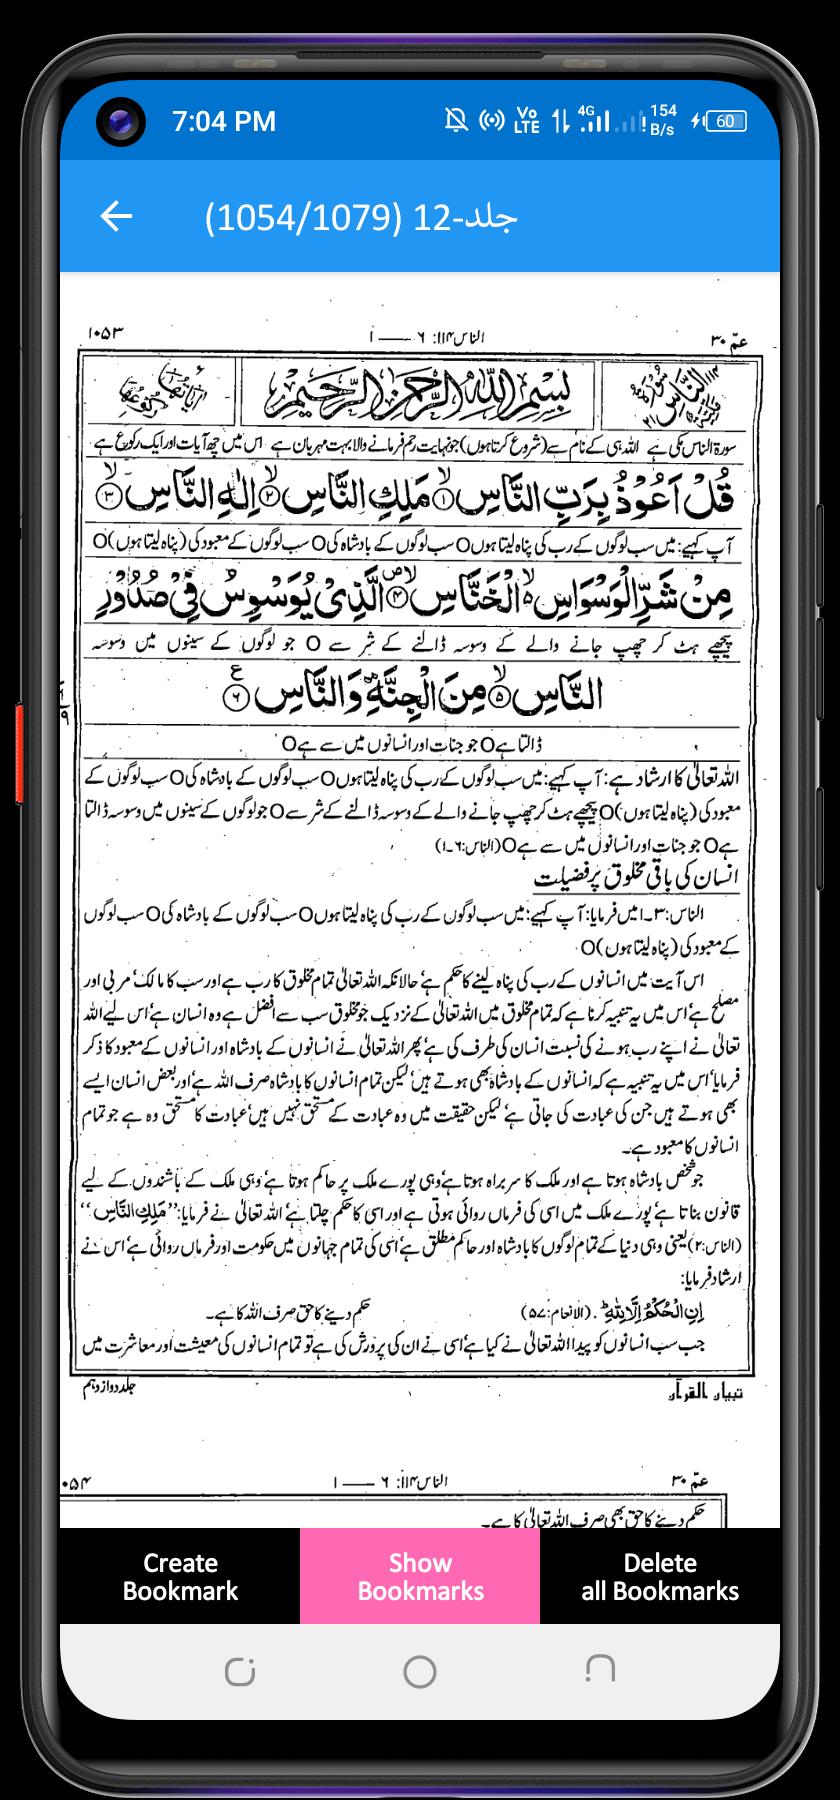 7:04 PM
Vo LTE 4G 154 B/s 60
جلد-12 (1054/1079)
عمّ ۳۰ الناس ۱۱۴: ۶ —— ۱ ۱۰۵۳
بسم الله الرحمن الرحيم
سورۃ الناس مکی ہے اللہ ہی کے نام سے (شروع کرتا ہوں) جو نہایت رحم فرمانے والا بہت مہربان ہے اس میں چھ آیات اور ایک رکوع ہے
قُلْ اَعُوْذُ بِرَبِّ النَّاسِ ۱ مَلِكِ النَّاسِ ۲ اِلٰهِ النَّاسِ ۳
آپ کہیے: میں سب لوگوں کے رب کی پناہ لیتا ہوں O سب لوگوں کے بادشاہ کی O سب لوگوں کے معبود کی (پناہ لیتا ہوں) O
مِنْ شَرِّ الْوَسْوَاسِ الْخَنَّاسِ ۴ الَّذِیْ یُوَسْوِسُ فِیْ صُدُوْرِ
پیچھے ہٹ کر چھپ جانے والے کے وسوسہ ڈالنے کے شر سے O جو لوگوں کے سینوں میں وسوسہ
النَّاسِ ۵ مِنَ الْجِنَّةِ وَ النَّاسِ ۶
ڈالتا ہے O جو جنات اور انسانوں میں سے ہے O
اللہ تعالیٰ کا ارشاد ہے: آپ کہیے: میں سب لوگوں کے رب کی پناہ لیتا ہوں O سب لوگوں کے بادشاہ کی O سب لوگوں کے
معبود کی (پناہ لیتا ہوں) O پیچھے ہٹ کر چھپ جانے والے کے وسوسہ ڈالنے کے شر سے O جو لوگوں کے سینوں میں وسوسہ ڈالتا
ہے O جو جنات اور انسانوں میں سے ہے O (الناس: ۶۔۱)
انسان کی باقی مخلوق پر فضیلت
الناس: ۳۔۱ میں فرمایا: آپ کہیے: میں سب لوگوں کے رب کی پناہ لیتا ہوں O سب لوگوں کے بادشاہ کی O سب لوگوں
کے معبود کی (پناہ لیتا ہوں) O
اس آیت میں انسانوں کے رب کی پناہ لینے کا حکم ہے، حالانکہ اللہ تعالیٰ تمام مخلوق کا رب ہے اور سب کا مالک، مربی اور
مصلح ہے، اس میں یہ تنبیہ کرنا ہے کہ تمام مخلوق میں اللہ تعالیٰ کے نزدیک جو مخلوق سب سے افضل ہے وہ انسان ہے، اس لیے اللہ
تعالیٰ نے اپنے رب ہونے کی نسبت انسان کی طرف کی ہے، پھر اللہ تعالیٰ نے انسانوں کے بادشاہ اور انسانوں کے معبود کا ذکر
فرمایا، اس میں یہ تنبیہ ہے کہ انسانوں کے بادشاہ بھی ہوتے ہیں، لیکن تمام انسانوں کا بادشاہ صرف اللہ ہے، اور بعض انسان ایسے
بھی ہوتے ہیں جن کی عبادت کی جاتی ہے، لیکن حقیقت میں وہ عبادت کے مستحق نہیں ہیں، عبادت کا مستحق وہ ہے جو تمام
انسانوں کا معبود ہے۔
جو شخص بادشاہ ہوتا ہے اور ملک کا سربراہ ہوتا ہے، وہی پورے ملک پر حاکم ہوتا ہے، وہی ملک کے باشندوں کے لیے
قانون بناتا ہے، پورے ملک میں اسی کی فرماں روائی ہوتی ہے اور اسی کا حکم چلتا ہے، اللہ تعالیٰ نے فرمایا: ”مَلِكِ النَّاسِ“
(الناس: ۲) یعنی وہی دنیا کے تمام لوگوں کا بادشاہ اور حاکم مطلق ہے، اسی کی تمام جہانوں میں حکومت اور فرماں روائی ہے، اس نے
ارشاد فرمایا:
اِنِ الْحُكْمُ اِلَّا لِلّٰهِ ؕ (الانعام: ۵۷) حکم دینے کا حق صرف اللہ کا ہے۔
جب سب انسانوں کو پیدا اللہ تعالیٰ نے کیا ہے، اسی نے ان کی پرورش کی ہے، تو تمام انسانوں کی معیشت اور معاشرت میں
تبیان القرآن جلد دوازدہم
عمّ ۳۰ الناس ۱۱۴: ۶ —— ۱ ۰۵۴
حکم دینے کا حق بھی صرف اللہ تعالیٰ کا ہے۔
Create Bookmark
Show Bookmarks
Delete all Bookmarks